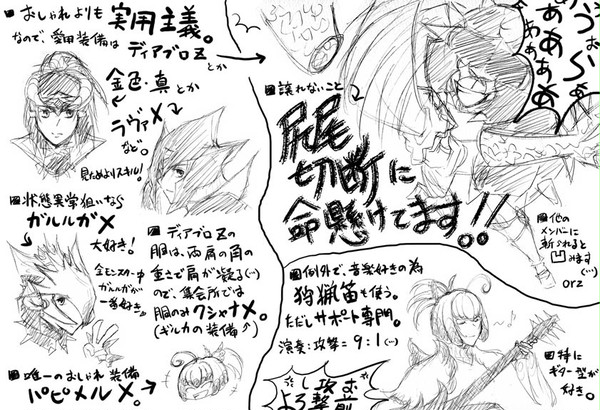 ■おしゃれよりも実用主義。
なので、愛用装備は
ディアブロZとか
金色・真とか
ラヴァX
など。
見ためよりスキル!
■状態異常狙いなら
ガルルガX
大好き!
全モンスター中
ガルルガが
一番好き。
■ディアブロZの
服は、両肩の角の
重さで肩が凝る(…)
ので、集会所では
服のみクシャナX。
(ギルカの装備↑)
■唯一のおしゃれ装備
パピメルX。→
■譲れないこと
尻尾
切断に
命懸けてます!!
■他の
メンバーに
斬られると
凹みます
(…)
orz
■例外で、音楽好きの為
狩猟笛も使う。
ただしサポート専門。
演奏:攻撃=9:1(…)
■特に
ギター型が
好き。